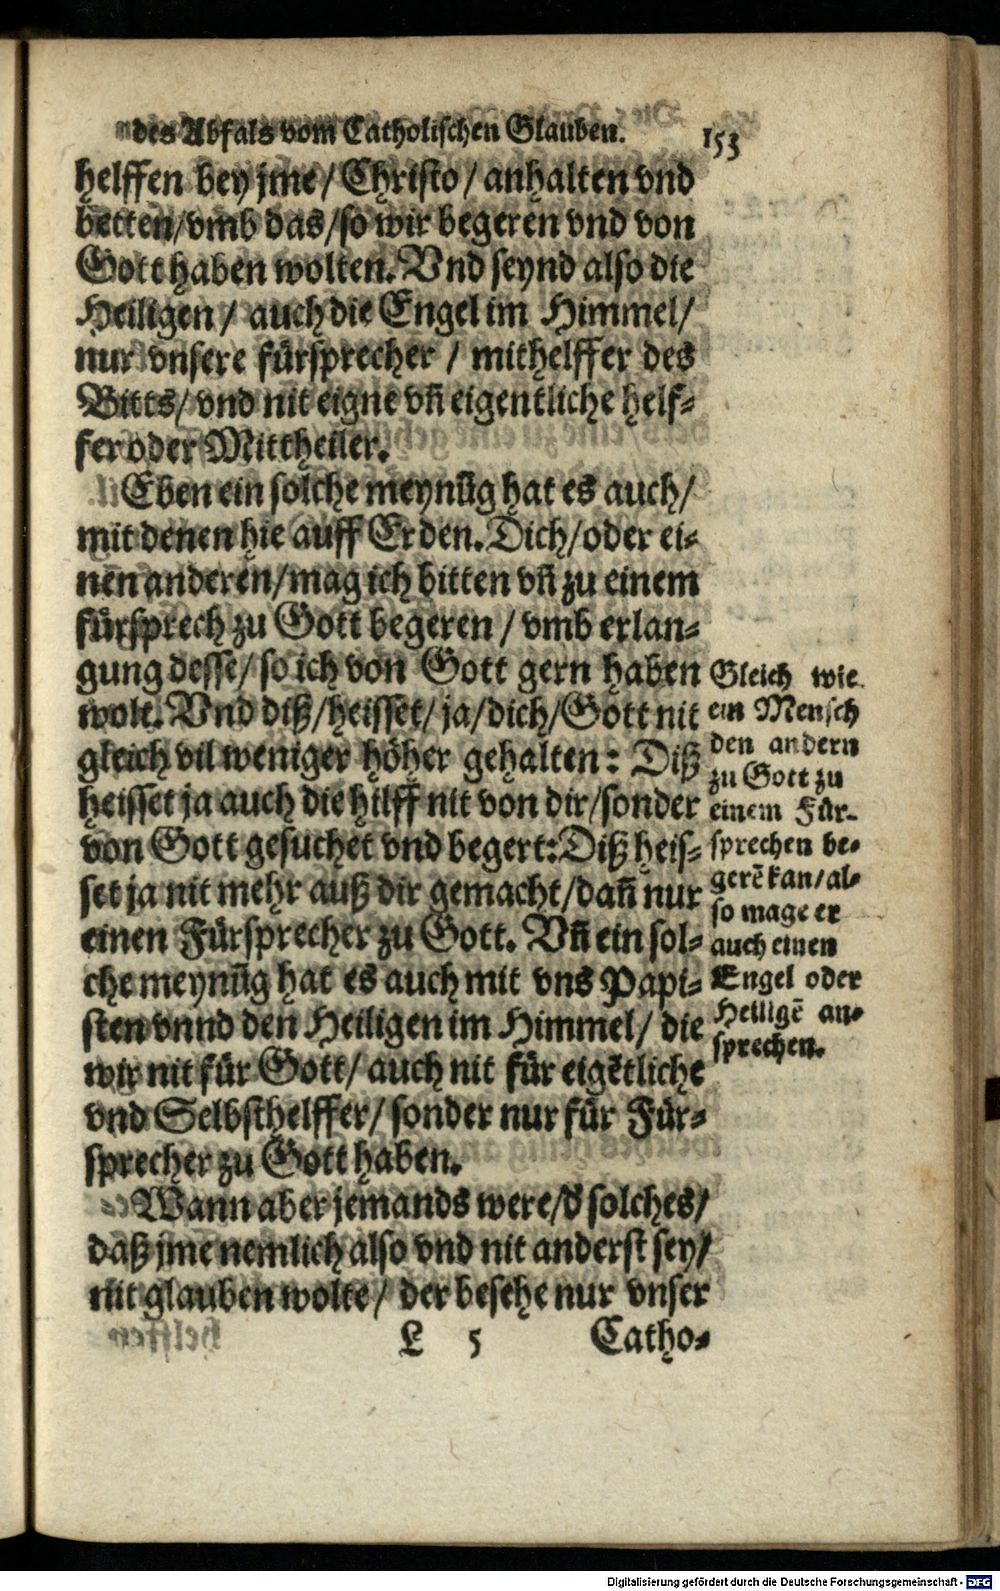 des Abfals vom Catholischen Glauben. 153
helffen bey jme/ Christo/ anhalten vnd
betten/ vmb das/ so wir begeren vnd von
Gott haben wolten. Vnd seynd also die
Heiligen/ auch die Engel im Himmel/
nur vnsere fürsprecher/ mithelffer des
Bitts/ vnd nit eigne vñ eigentliche helf-
fer oder Mittheiler.
Eben ein solche meynũg hat es auch/
mit denen hie auff Erden. Dich/ oder ei-
nen anderen/ mag ich bitten vñ zu einem
fürsprech zu Gott begeren/ vmb erlan-
gung desse/ so ich von Gott gern haben
wolt. Vnd diß/ heisset/ ja/ dich/ Gott nit
gleich vil weniger höher gehalten: Diß
heisset ja auch die hilff nit von dir/ sonder
von Gott gesuchet vnd begert: Diß heis-
set ja nit mehr auß dir gemacht/ dañ nur
einen Fürsprecher zu Gott. Vñ ein sol-
che meynũg hat es auch mit vns Papi-
sten vnnd den Heiligen im Himmel/ die
wir nit für Gott/ auch nit für eigẽtliche
vnd Selbsthelffer/ sonder nur für Für-
sprecher zu Gott haben.
Wann aber jemands were/ d' solches/
daß jme nemlich also vnd nit anderst sey/
nit glauben wolte/ der besehe nur vnser
L 5 Catho-
Gleich wie
ein Mensch
den andern
zu Gott zu
einem Für-
sprechen be-
gerẽ kan/ al-
so mage er
auch einen
Engel oder
Heiligẽ an-
sprechen.
Digitalisierung gefördert durch die Deutsche Forschungsgemeinschaft - DFG